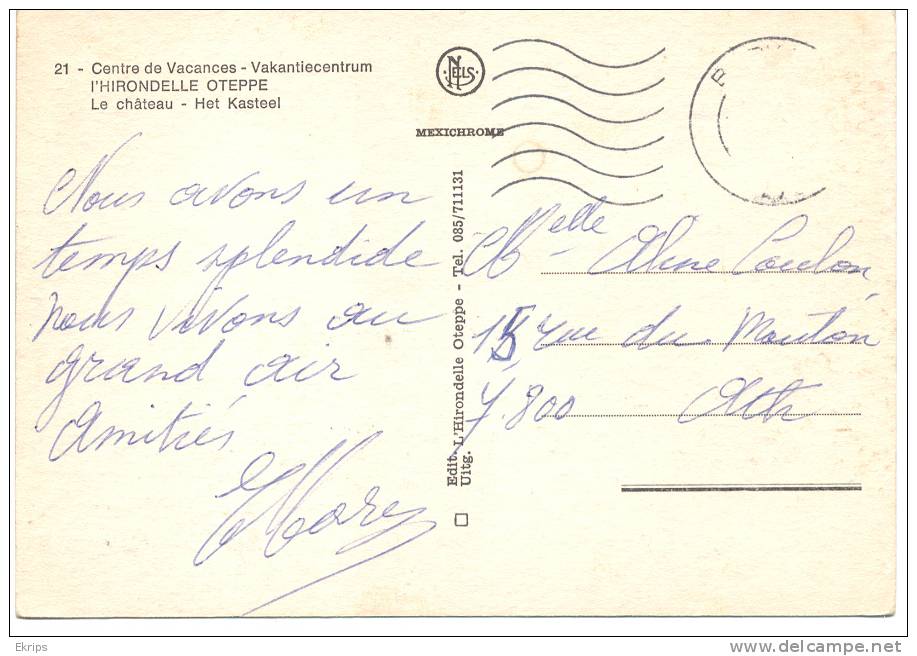 21 - Centre de Vacances - Vakantiecentrum
l'HIRONDELLE OTEPPE
Le château - Het Kasteel
NELS
MEXICHROME
Nous avons un
temps splendide
nous vivons au
grand air
Amitiés
Edit. L'Hirondelle Oteppe - Tel. 085/711131
Uitg.
Melle Aline Coulon,
15, rue du Mouton
7.800 Ath
Ekrips
www.delcampe.net